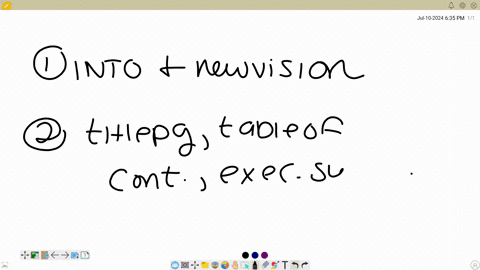 Jul-10-2024 6:35 PM 1/1
① INTO + newvision
② titlepg, tableof
cont., exec. su